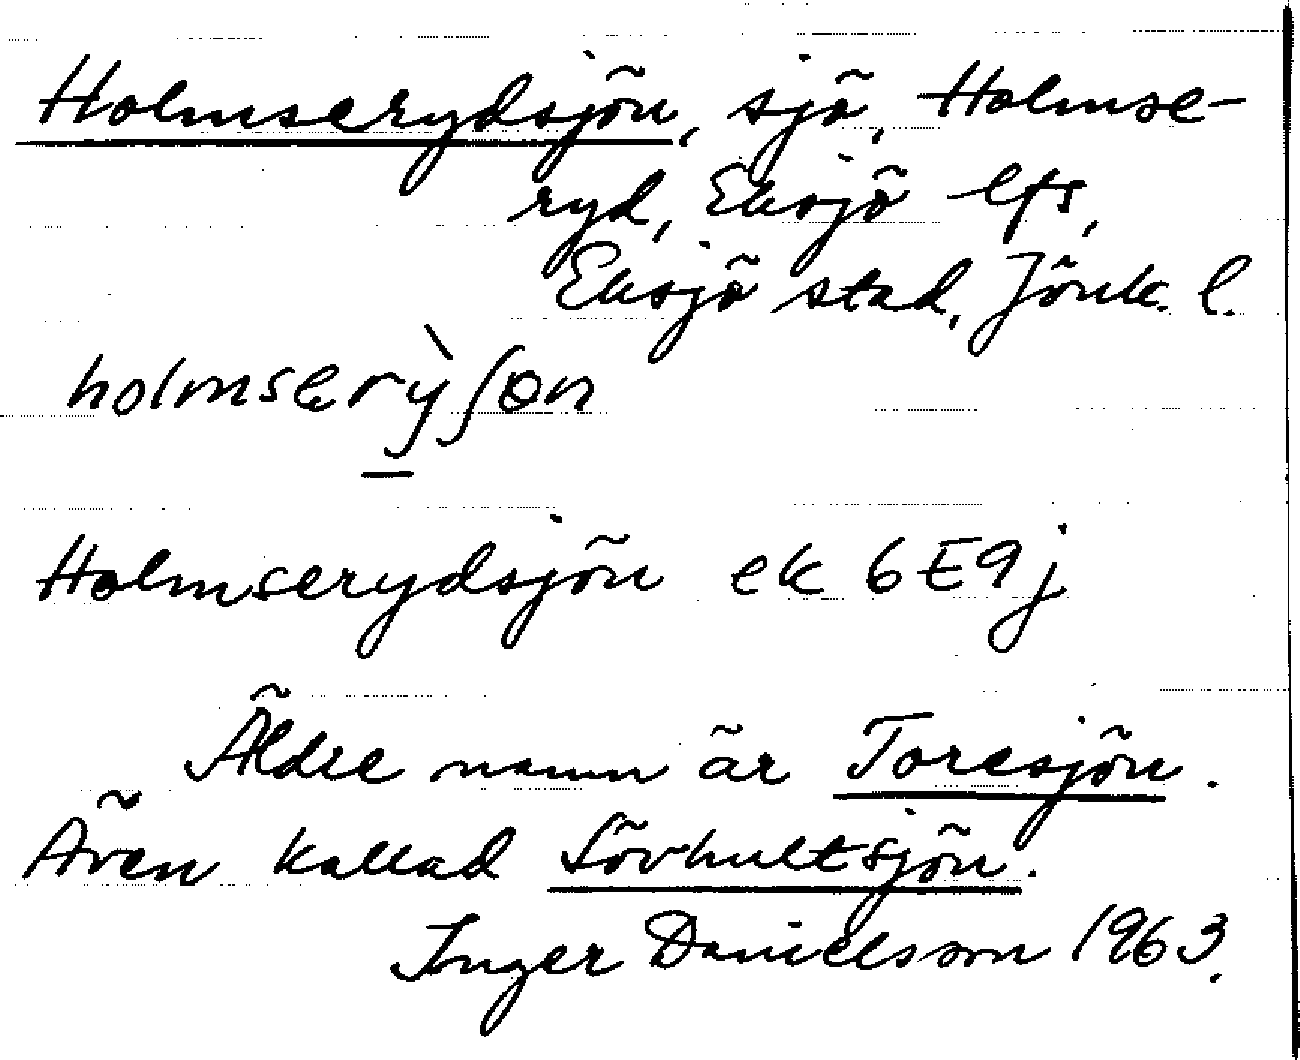 Holmserydsjön, sjö, Holmse-
ryd, Eksjö lfs,
Eksjö stad, Jönk. l.
holmserỳʃɵn
Holmserydsjön ek 6E9j
Äldre namn är Toresjön.
Även kallad Lövhultsjön.
Inger Danielsson 1963.